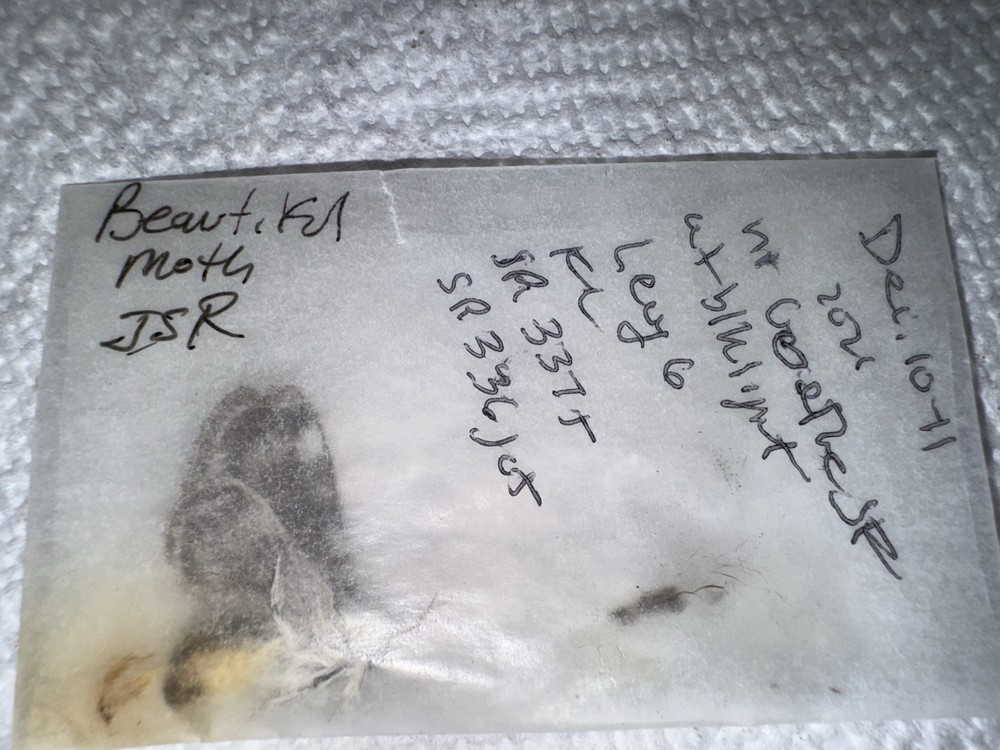 Beautiful
Moth
JSR
Dec. 10-11
nr Goethe SR
at blklight
Levy
SR 337
SR 336 jct